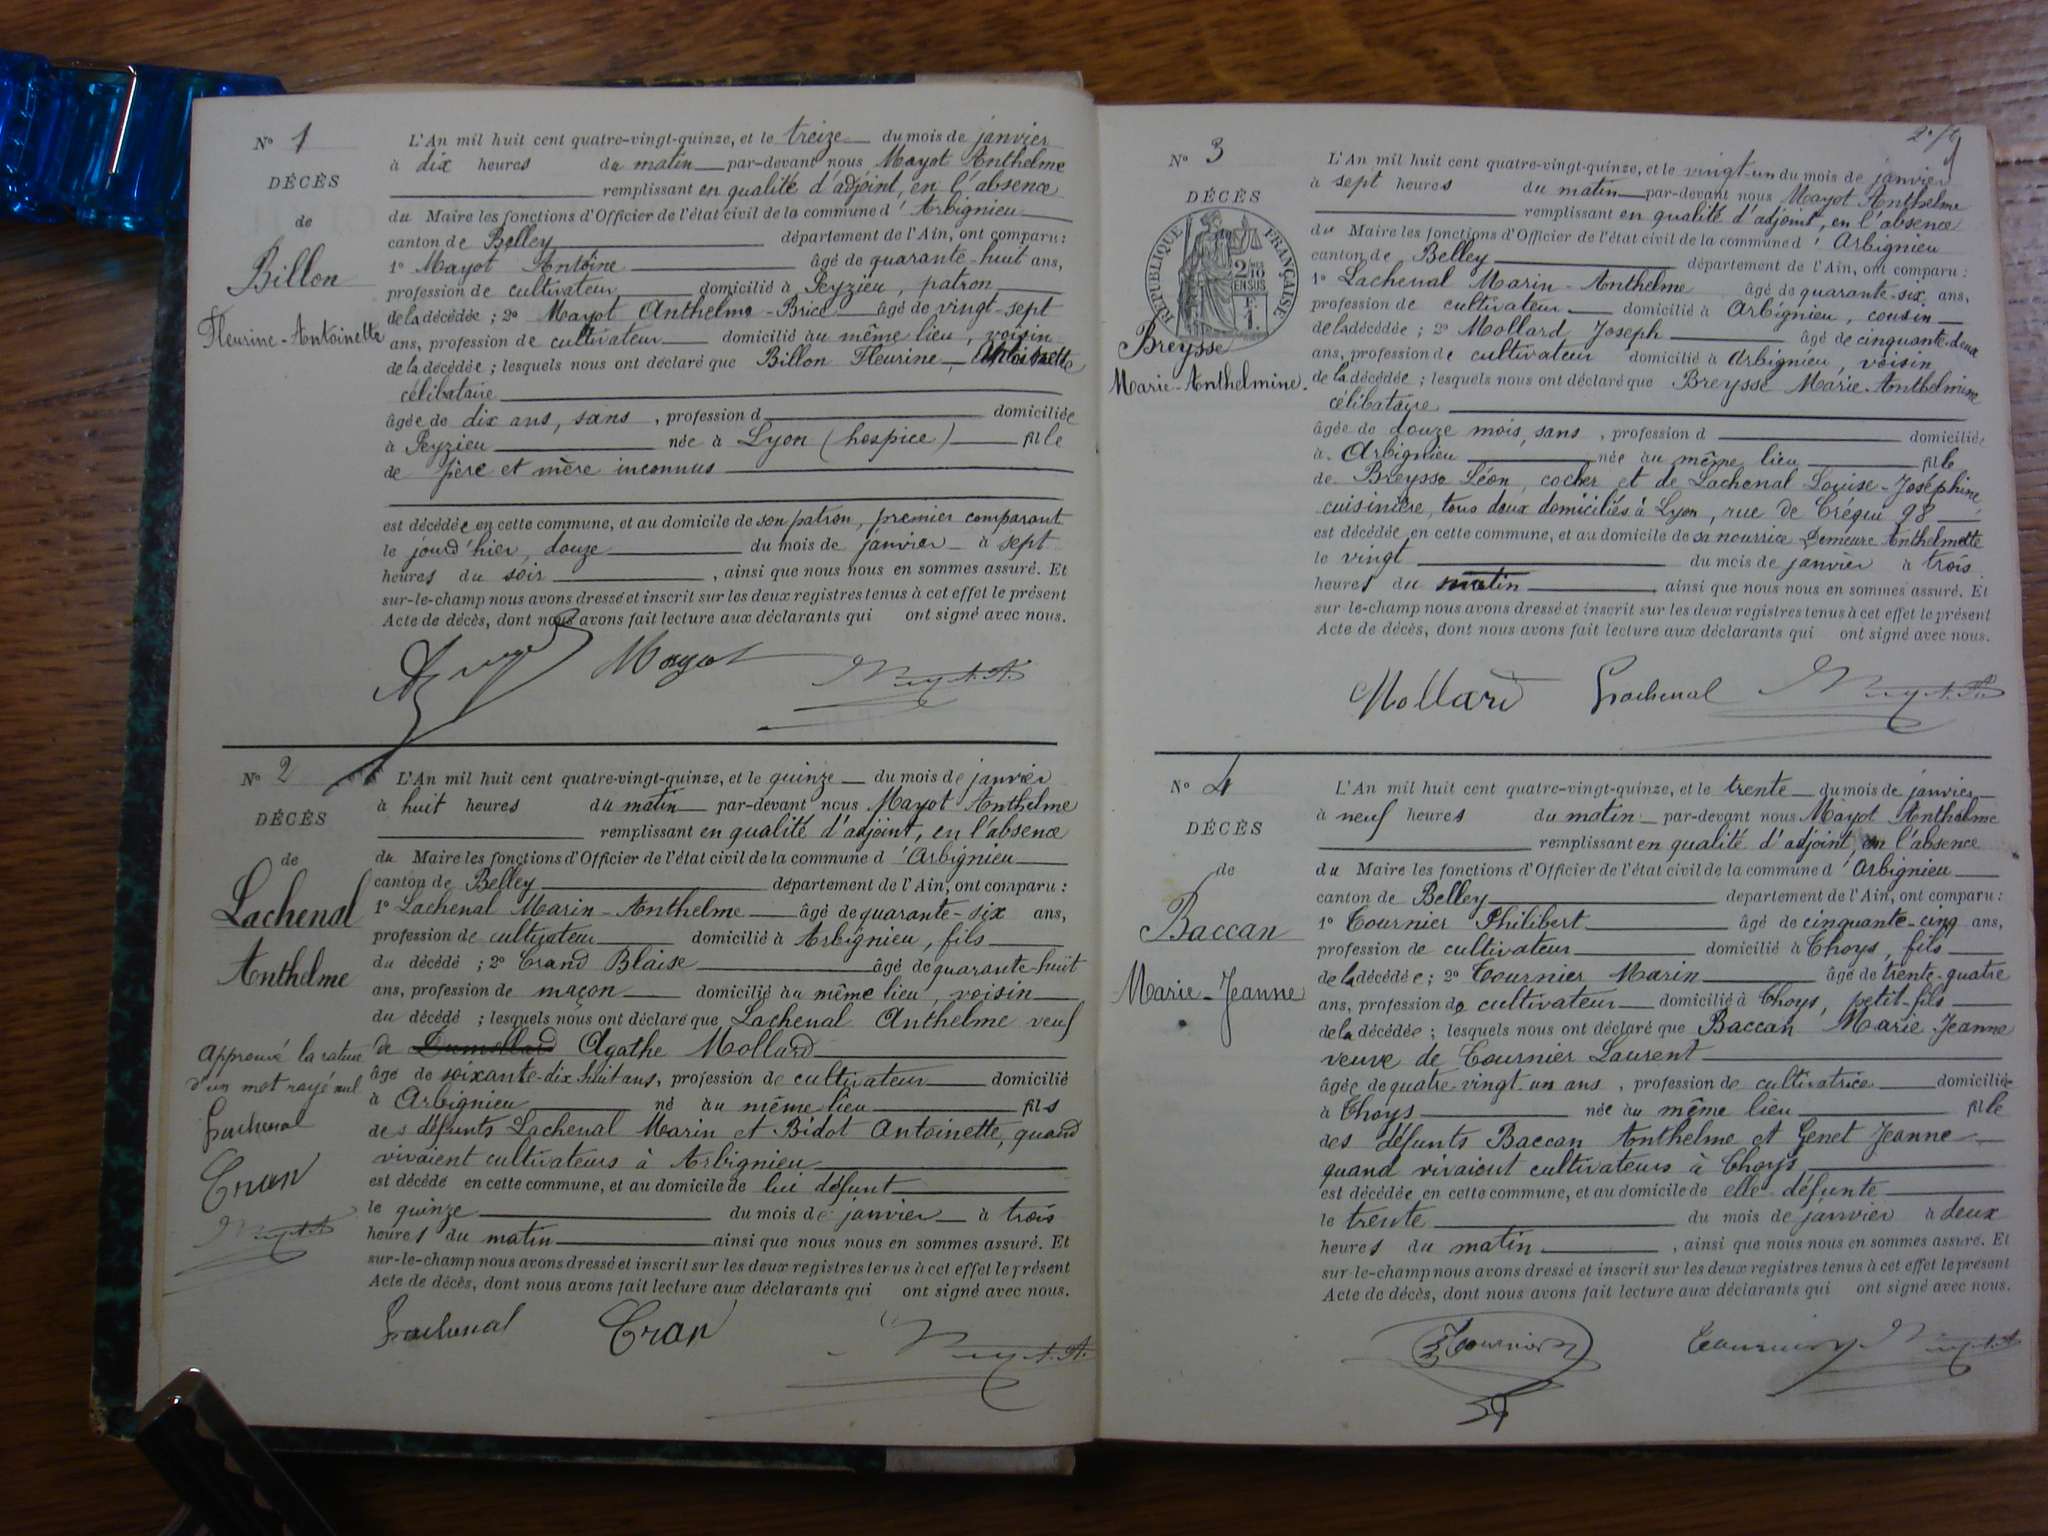 N° 1
DÉCÈS
de
Billon
Fleurine-Antoinette
L'An mil huit cent quatre-vingt-quinze, et le treize du mois de janvier
à dix heures du matin par-devant nous Mayot Anthelme
remplissant en qualité d'adjoint, en l'absence
du Maire les fonctions d'Officier de l'état civil de la commune d'Arbignieu
canton de Belley département de l'Ain, ont comparu :
1° Mayot Antoine âgé de quarante-huit ans,
profession de cultivateur domicilié à Peyzieu, patron
de la décédée ; 2° Mayot Anthelme-Brice âgé de vingt-sept
ans, profession de cultivateur domicilié au même lieu, voisin
de la décédée ; lesquels nous ont déclaré que Billon Fleurine, Antoinette
célibataire
âgée de dix ans, sans, profession d domiciliée
à Peyzieu née à Lyon (hospice) fille
de père et mère inconnus
est décédée en cette commune, et au domicile de son patron, premier comparant
le jourd'hier, douze du mois de janvier à sept
heures du soir, ainsi que nous nous en sommes assuré. Et
sur-le-champ nous avons dressé et inscrit sur les deux registres tenus à cet effet le présent
Acte de décès, dont nous avons fait lecture aux déclarants qui ont signé avec nous.
Mayot
N° 2
DÉCÈS
de
Lachenal
Anthelme
approuvé la rature
d'un mot rayé nul
Lachenal
Cran
L'An mil huit cent quatre-vingt-quinze, et le quinze du mois de janvier
à huit heures du matin par-devant nous Mayot Anthelme
remplissant en qualité d'adjoint, en l'absence
du Maire les fonctions d'Officier de l'état civil de la commune d'Arbignieu
canton de Belley département de l'Ain, ont comparu :
1° Lachenal Marin-Anthelme âgé de quarante-six ans,
profession de cultivateur domicilié à Arbignieu, fils
du décédé ; 2° Crand Blaise âgé de quarante-huit
ans, profession de maçon domicilié au même lieu, voisin
du décédé ; lesquels nous ont déclaré que Lachenal Anthelme veuf
de Dumollard Agathe Mollard
âgé de soixante-dix huit ans, profession de cultivateur domicilié
à Arbignieu né au même lieu fils
des défunts Lachenal Marin et Bidot Antoinette, quand
vivaient cultivateurs à Arbignieu
est décédé en cette commune, et au domicile de lui défunt
le quinze du mois de janvier à trois
heures du matin ainsi que nous nous en sommes assuré. Et
sur-le-champ nous avons dressé et inscrit sur les deux registres tenus à cet effet le présent
Acte de décès, dont nous avons fait lecture aux déclarants qui ont signé avec nous.
Lachenal Cran
N° 3
DÉCÈS
RÉPUBLIQUE FRANÇAISE
2/10 EN SUS
Breysse
Marie-Anthelmine
L'An mil huit cent quatre-vingt-quinze, et le vingt-un du mois de janvier
à sept heures du matin par-devant nous Mayot Anthelme
remplissant en qualité d'adjoint, en l'absence
du Maire les fonctions d'Officier de l'état civil de la commune d'Arbignieu
canton de Belley département de l'Ain, ont comparu :
1° Lachenal Marin-Anthelme âgé de quarante-six ans,
profession de cultivateur domicilié à Arbignieu, cousin
de la décédée ; 2° Mollard Joseph âgé de cinquante-deux
ans, profession de cultivateur domicilié à Arbignieu, voisin
de la décédée ; lesquels nous ont déclaré que Breysse Marie-Anthelmine
célibataire
âgée de douze mois, sans, profession d domiciliée
à Arbignieu née au même lieu fille
de Breysse Léon, cocher et de Lachenal Louise-Joséphine,
cuisinière, tous deux domiciliés à Lyon, rue de Créqui 98
est décédée en cette commune, et au domicile de sa nourrice Demeure Anthelmette
le vingt du mois de janvier à trois
heures du matin ainsi que nous nous en sommes assuré. Et
sur-le-champ nous avons dressé et inscrit sur les deux registres tenus à cet effet le présent
Acte de décès, dont nous avons fait lecture aux déclarants qui ont signé avec nous.
Mollard Lachenal
N° 4
DÉCÈS
de
Baccan
Marie-Jeanne
L'An mil huit cent quatre-vingt-quinze, et le trente du mois de janvier
à neuf heures du matin par-devant nous Mayot Anthelme
remplissant en qualité d'adjoint, en l'absence
du Maire les fonctions d'Officier de l'état civil de la commune d'Arbignieu
canton de Belley département de l'Ain, ont comparu :
1° Tournier Philibert âgé de cinquante-cinq ans,
profession de cultivateur domicilié à Thoys, fils
de la décédée ; 2° Tournier Marin âgé de trente-quatre
ans, profession de cultivateur domicilié à Thoys, petit-fils
de la décédée ; lesquels nous ont déclaré que Baccan Marie Jeanne
veuve de Tournier Laurent
âgée de quatre-vingt-un ans, profession de cultivatrice domiciliée
à Thoys née au même lieu fille
des défunts Baccan Anthelme et Genet Jeanne
quand vivaient cultivateurs à Thoys
est décédée en cette commune, et au domicile de elle défunte
le trente du mois de janvier à deux
heures du matin, ainsi que nous nous en sommes assuré. Et
sur-le-champ nous avons dressé et inscrit sur les deux registres tenus à cet effet le présent
Acte de décès, dont nous avons fait lecture aux déclarants qui ont signé avec nous.
Tournier Tournier